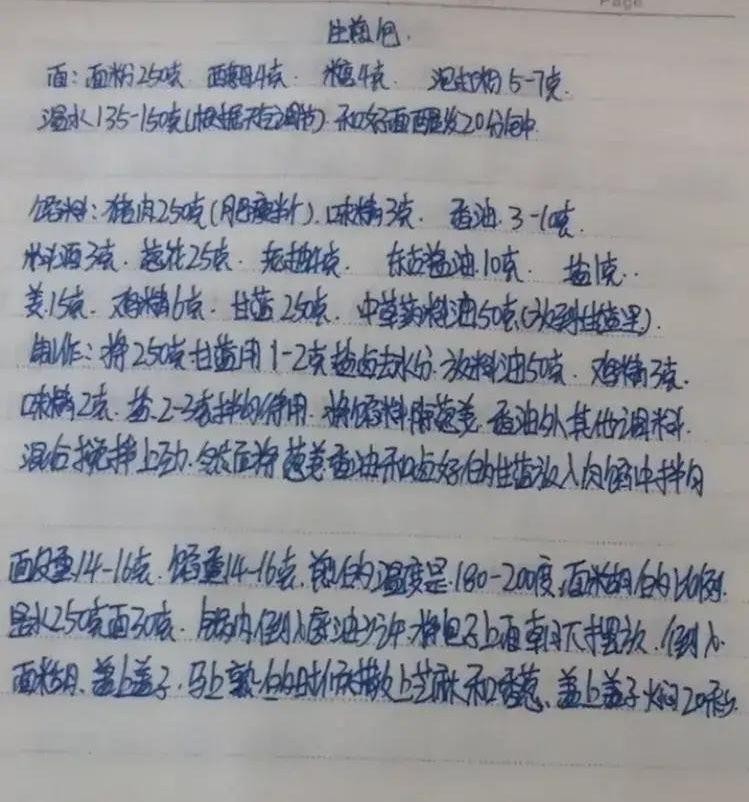 Page
生煎包.
面:面粉250克 酵母4克. 糖4克. 泡打粉5-7克.
温水135-150克(根据天气调节).和好面醒发20分钟.
馅料:猪肉250克(肥瘦半).味精3克. 香油.3-10克.
料酒3克.葱花25克.老抽4克. 东古酱油.10克. 盐1克..
姜15克.鸡精6克.甘蓝250克.中草药料油50克(放到甘蓝里).
制作:将250克甘蓝用1-2克盐卤去水分.放料油50克.鸡精3克.
味精2克.盐.2-3克拌均待用.将馅料除葱姜.香油外其他调料.
混合搅拌上劲.然后将葱姜香油和卤好的甘蓝放入肉馅中拌匀
面皮重14-16克.馅重14-16克.煎包的温度是180-200度,面糊的比例.
是水250克面30克.锅内倒入底油 将包子上面朝下摆放.倒入.
面糊.盖上盖子.马上熟的时候撒上芝麻和香葱、盖上盖子焖20秒.